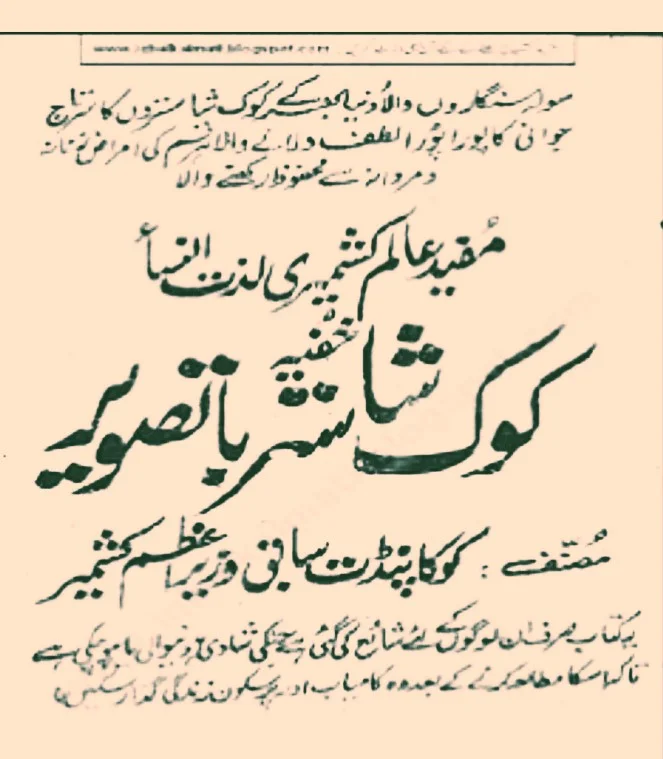 سولہ سنگاروں والا دنیا بھر کے کوک شاستروں کا سرتاج
جوانی کا پورا پورا لطف دلانے والا ہر قسم کی امراض زنانہ
و مردانہ سے محفوظ رکھنے والا
مُفید عالم کشمیری لذت النسأ
خفیہ
کوک شاستر باتصویر
مُصنّف : کوکا پنڈت سابق وزیراعظم کشمیر
یہ کتاب صرف ان لوگوں کے لئے شائع کی گئی ہے جنکی شادی ہونیوالی یا ہو چکی ہے
تاکہ اسکا مطالعہ کرنے کے بعد وہ کامیاب اور پرسکون زندگی گذار سکیں